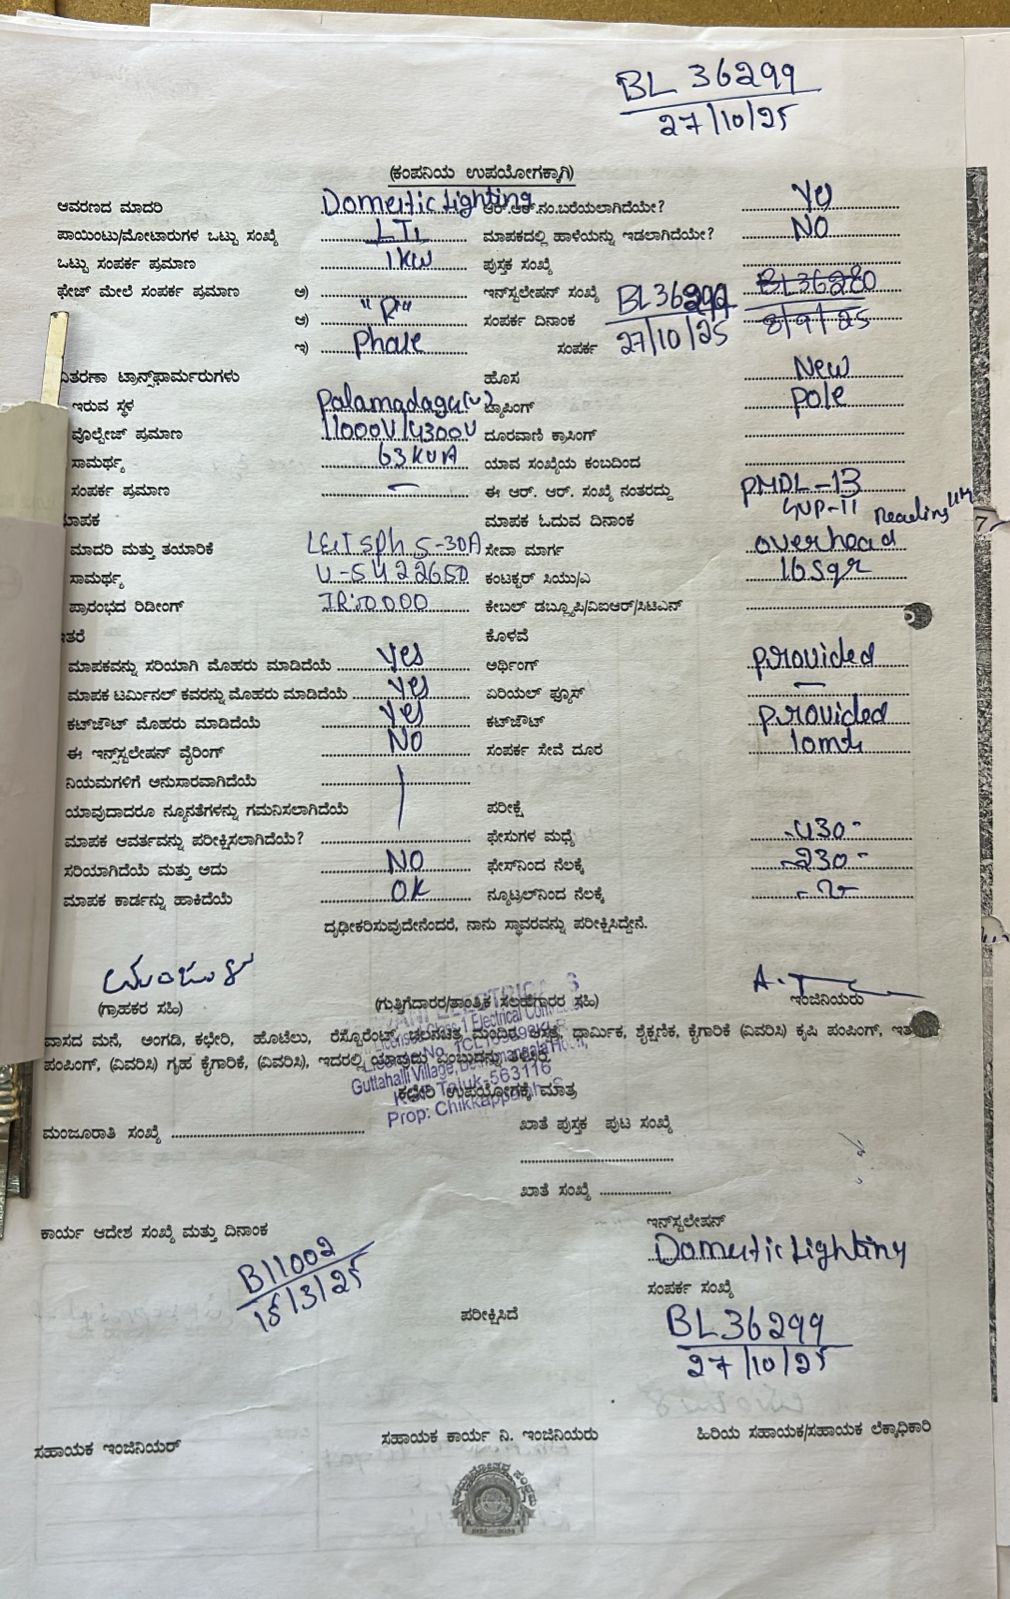 BL 36299
27/10/25
(ಕಂಪನಿಯ ಉಪಯೋಗಕ್ಕಾಗಿ)
ಆವರಣದ ಮಾದರಿ Domestic Lighting ಆರ್.ಆರ್.ನಂ.ಬರೆಯಲಾಗಿದೆಯೇ? Yes
ಪಾಯಿಂಟು/ಮೋಟಾರುಗಳ ಒಟ್ಟು ಸಂಖ್ಯೆ LT1 ಮಾಪಕದಲ್ಲಿ ಹಾಳೆಯನ್ನು ಇಡಲಾಗಿದೆಯೇ? NO
ಒಟ್ಟು ಸಂಪರ್ಕ ಪ್ರಮಾಣ 1KW ಪುಸ್ತಕ ಸಂಖ್ಯೆ
ಫೇಜ್ ಮೇಲೆ ಸಂಪರ್ಕ ಪ್ರಮಾಣ ಅ) ಇನ್‌ಸ್ಟಲೇಷನ್ ಸಂಖ್ಯೆ BL36299 BL36280
ಆ) "R" ಸಂಪರ್ಕ ದಿನಾಂಕ 27/10/25 8/9/25
ಇ) Phase ಸಂಪರ್ಕ
ವಿತರಣಾ ಟ್ರಾನ್ಸ್‌ಫಾರ್ಮರುಗಳು ಹೊಸ New
ಇರುವ ಸ್ಥಳ Palamadagu(v) ಟ್ಯಾಪಿಂಗ್ Pole
ವೊಲ್ಟೇಜ್ ಪ್ರಮಾಣ 11000V/4300V ದೂರವಾಣಿ ಕ್ರಾಸಿಂಗ್
ಸಾಮರ್ಥ್ಯ 63KVA ಯಾವ ಸಂಖ್ಯೆಯ ಕಂಬದಿಂದ
ಸಂಪರ್ಕ ಪ್ರಮಾಣ - ಈ ಆರ್. ಆರ್. ಸಂಖ್ಯೆ ನಂತರದ್ದು PMDL-13
ಮಾಪಕ ಮಾಪಕ ಓದುವ ದಿನಾಂಕ Reading
ಮಾದರಿ ಮತ್ತು ತಯಾರಿಕೆ L&T Sph 5-30A ಸೇವಾ ಮಾರ್ಗ overhead
ಸಾಮರ್ಥ್ಯ U-5422650 ಕಂಟಕ್ಟರ್ ಸಿಯು/ಎ 16 Sqr
ಪ್ರಾರಂಭದ ರಿಡೀಂಗ್ IR:0000 ಕೇಬಲ್ ಡಬ್ಲ್ಯೂಪಿ/ವಿಐಆರ್/ಸಿಟಿಎಸ್
ಇತರೆ ಕೊಳವೆ
ಮಾಪಕವನ್ನು ಸರಿಯಾಗಿ ಮೊಹರು ಮಾಡಿದೆಯೆ yes ಅರ್ಥಿಂಗ್ provided
ಮಾಪಕ ಟರ್ಮಿನಲ್ ಕವರನ್ನು ಮೊಹರು ಮಾಡಿದೆಯೆ yes ಏರಿಯಲ್ ಫ್ಯೂಸ್ -
ಕಟ್‌ಜೌಟ್ ಮೊಹರು ಮಾಡಿದೆಯೆ yes ಕಟ್‌ಜೌಟ್ provided
ಈ ಇನ್ಸ್‌ಸ್ಟಲೇಷನ್ ವೈರಿಂಗ್ NO ಸಂಪರ್ಕ ಸೇವೆ ದೂರ 10mtr
ನಿಯಮಗಳಿಗೆ ಅನುಸಾರವಾಗಿದೆಯೆ
ಯಾವುದಾದರೂ ನ್ಯೂನತೆಗಳನ್ನು ಗಮನಿಸಲಾಗಿದೆಯೆ ಪರೀಕ್ಷೆ
ಮಾಪಕ ಆವರ್ತವನ್ನು ಪರೀಕ್ಷಿಸಲಾಗಿದೆಯೆ? ಫೇಸುಗಳ ಮಧ್ಯೆ -430-
ಸರಿಯಾಗಿದೆಯೆ ಮತ್ತು ಅದು NO ಫೇಸ್‌ನಿಂದ ನೆಲಕ್ಕೆ -230-
ಮಾಪಕ ಕಾರ್ಡನ್ನು ಹಾಕಿದೆಯೆ OK ನ್ಯೂಟ್ರಲ್‌ನಿಂದ ನೆಲಕ್ಕೆ -2-
ದೃಢೀಕರಿಸುವುದೇನೆಂದರೆ, ನಾನು ಸ್ಥಾವರವನ್ನು ಪರೀಕ್ಷಿಸಿದ್ದೇನೆ.
(ಗ್ರಾಹಕರ ಸಹಿ) (ಗುತ್ತಿಗೆದಾರರ/ತಾಂತ್ರಿಕ ಸಲಹೆಗಾರರ ಸಹಿ) ಇಂಜಿನಿಯರು
ವಾಸದ ಮನೆ, ಅಂಗಡಿ, ಕಛೇರಿ, ಹೊಟೆಲು, ರೆಸ್ಟೋರೆಂಟ್, ಚಲನಚಿತ್ರ ಮಂದಿರ, ಆಸ್ಪತ್ರೆ, ಧಾರ್ಮಿಕ, ಶೈಕ್ಷಣಿಕ, ಕೈಗಾರಿಕೆ (ವಿವರಿಸಿ) ಕೃಷಿ ಪಂಪಿಂಗ್, ಇತರೆ
ಪಂಪಿಂಗ್, (ವಿವರಿಸಿ) ಗೃಹ ಕೈಗಾರಿಕೆ, (ವಿವರಿಸಿ), ಇದರಲ್ಲಿ ಯಾವುದು ಎಂಬುದನ್ನು ತಿಳಿಸಿರಿ.
Guttahalli Village,
Taluk-563116
Prop: Chikkappaiah
ಕಛೇರಿ ಉಪಯೋಗಕ್ಕೆ ಮಾತ್ರ
ಮಂಜೂರಾತಿ ಸಂಖ್ಯೆ ಖಾತೆ ಪುಸ್ತಕ ಪುಟ ಸಂಖ್ಯೆ
ಖಾತೆ ಸಂಖ್ಯೆ
ಕಾರ್ಯ ಆದೇಶ ಸಂಖ್ಯೆ ಮತ್ತು ದಿನಾಂಕ ಇನ್‌ಸ್ಟಲೇಷನ್
B11002 Domestic Lighting
15/3/25 ಸಂಪರ್ಕ ಸಂಖ್ಯೆ
ಪರೀಕ್ಷಿಸಿದೆ BL36299
27/10/25
ಸಹಾಯಕ ಇಂಜಿನಿಯರ್ ಸಹಾಯಕ ಕಾರ್ಯ ನಿ. ಇಂಜಿನಿಯರು ಹಿರಿಯ ಸಹಾಯಕ/ಸಹಾಯಕ ಲೆಕ್ಕಾಧಿಕಾರಿ